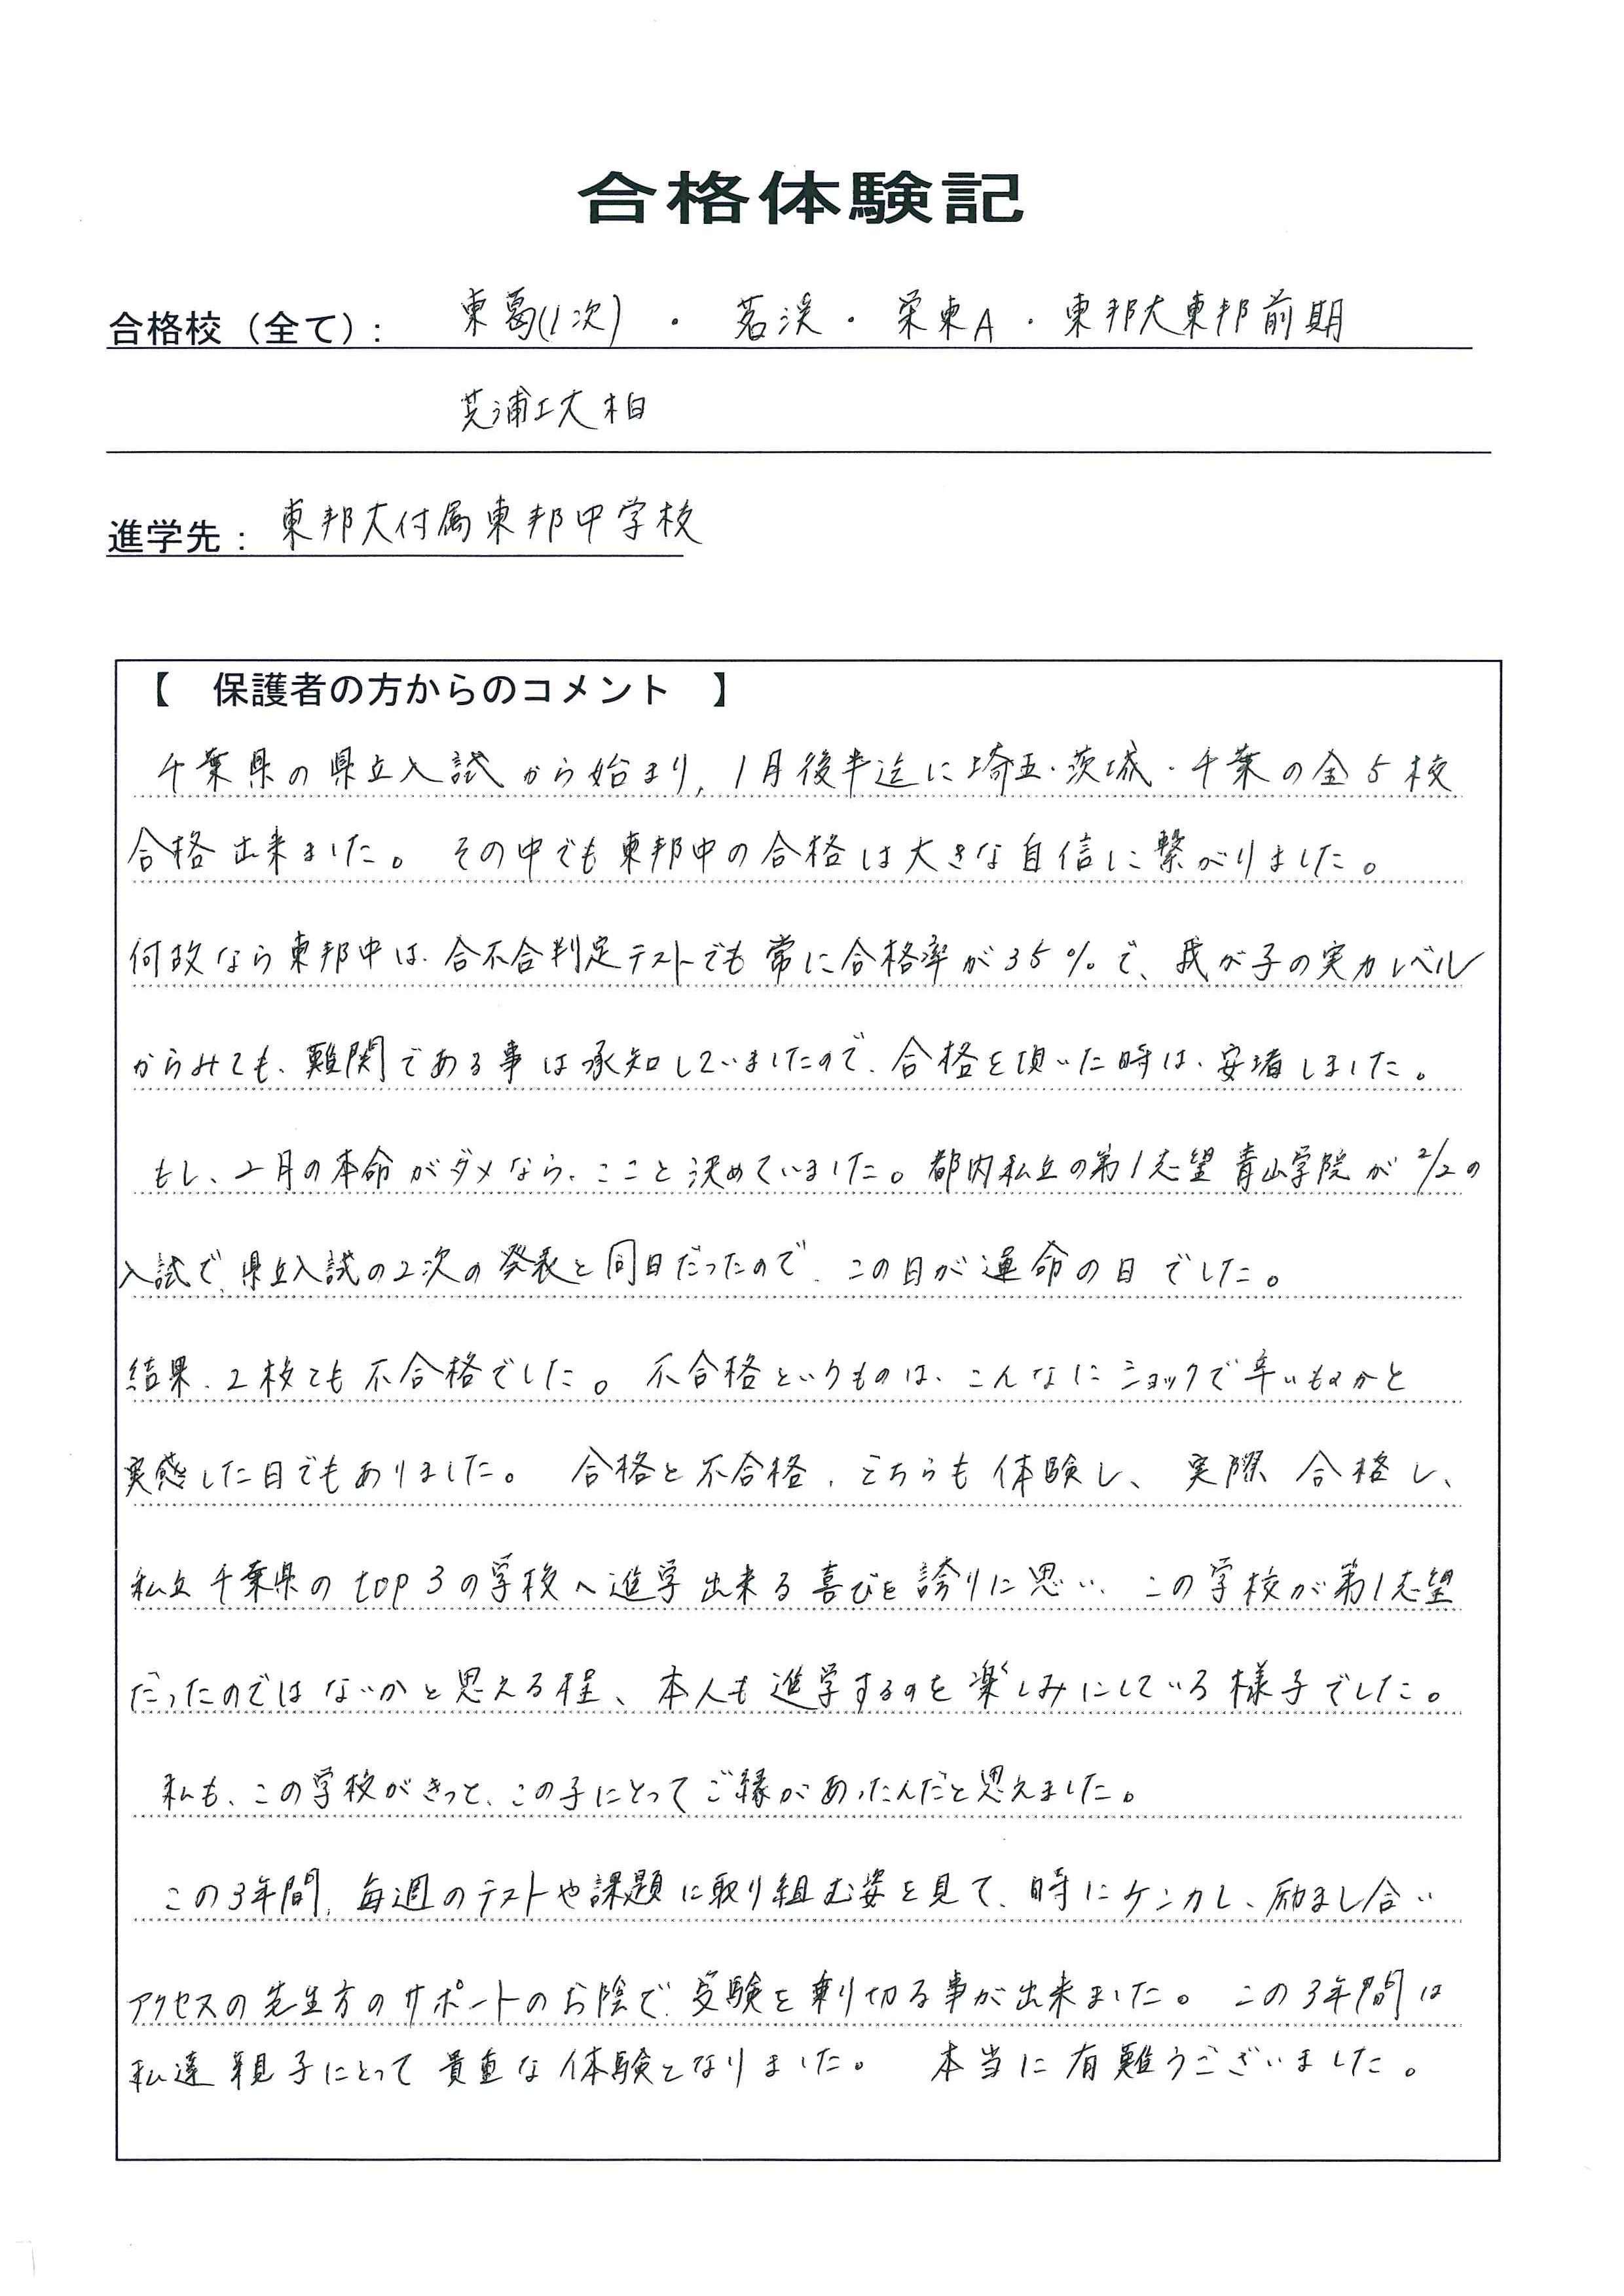 合格体験記
合格校（全て）： 東葛(1次) ・ 茗渓 ・ 栄東A ・ 東邦大東邦前期
芝浦工大柏
進学先： 東邦大付属東邦中学校
【 保護者の方からのコメント 】
千葉県の県立入試から始まり、1月後半迄に埼玉・茨城・千葉の全5校
合格出来ました。その中でも東邦中の合格は大きな自信に繋がりました。
何故なら東邦中は、合不合判定テストでも常に合格率が35%で、我が子の実力レベル
からみても、難関である事は承知していましたので、合格を頂いた時は、安堵しました。
もし、2月の本命がダメなら、ここと決めていました。都内私立の第1志望青山学院が2/2の
入試で、県立入試の2次の発表と同日だったので、この日が運命の日でした。
結果、2校とも不合格でした。不合格というものは、こんなにショックで辛いものかと
実感した日でもありました。合格と不合格、どちらも体験し、実際合格し、
私立千葉県のtop3の学校へ進学出来る喜びを誇りに思い、この学校が第1志望
だったのではないかと思える程、本人も進学するのを楽しみにしている様子でした。
私も、この学校がきっと、この子にとってご縁があったんだと思えました。
この3年間、毎週のテストや課題に取り組む姿を見て、時にケンカし、励まし合い
アクセスの先生方のサポートのお陰で、受験を乗り切る事が出来ました。この3年間は
私達親子にとって貴重な体験となりました。本当に有難うございました。